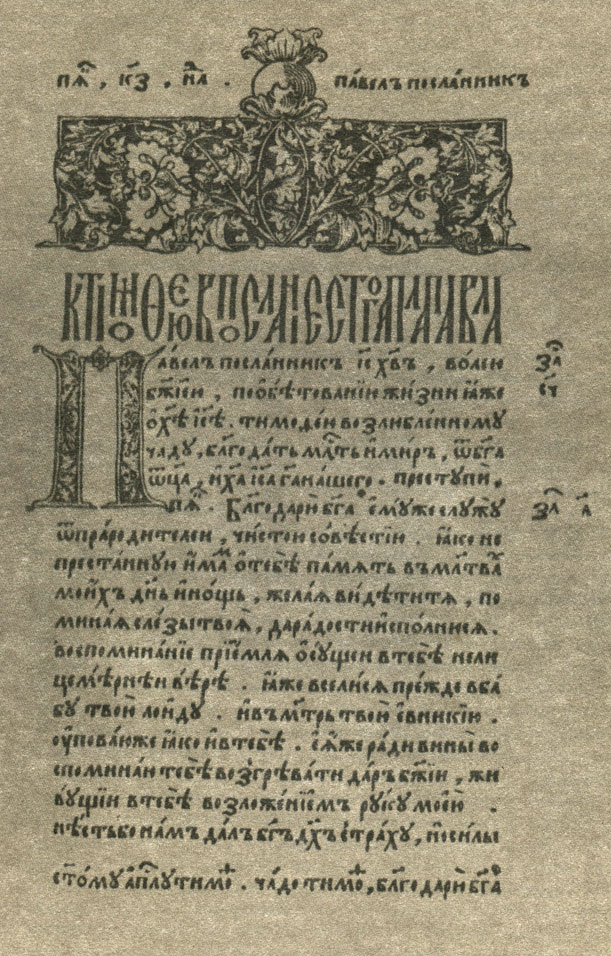 пѧ҃, к҃з, нлⷶ. па́велъ посла́нникъ
К ТИМОѲЕЮ В ПОСЛАНІЕ СТ҃ОГО АП҃ЛА ПАВЛА
Па́велъ посла́нникъ і҆с х҃въ, во́лею
за҇
бж҃їею, по о҆бѣтова́нїю жи́зни ꙗ҆́же
ст҃
о҆ х҃ѣ і҆с҃ѣ. тимоѳею возлю́бленному
ча́ду, благода́ть мл҇ть и҆ ми́р, ѿ бг҃а
ѿц҃а, и҆ х҃а і҆с҃а гд҇а на́шего. преступи̑,
пѧ҇. Благодарю̀ бг҃а є҆му́же служу̀
за҇ а҃
ѿ прароди́телей, чи́стою со́вѣстїю. ꙗ҆́ко не
преста́нную и҆́мамъ о҆ тебѣ̀ па́мять въ мл҃твахъ
мои́хъ дн҃ь и҆ но́щь, жела́я ви́дѣти тѧ, по
мина́я сле́зы твоѧ̑, да ра́дости и҆спо́лнюся.
воспомина́нїе прїе́мля о҆ су́щей в тебѣ̀ нели
цемѣ́рнѣй вѣ́рѣ. ꙗ҆́же всели́ся пре́жде в ба
бу твою̀ лои́ду. и҆ въ мт҃рь твою̀ є҆вники́ю.
оу҆пова́ю же ꙗ҆́ко и҆ в тебѣ̀. є҆ѧ́же ра́ди вины̀ во
спомина́ю тебѣ̀ возгрѣва́ти да́ръ бж҃їи, жи
ву́щїи в тебѣ̀ возложе́нїемъ руку̀ мое́ю.
нѣ́сть бо на́мъ да́лъ бг҃ъ дх҃ъ стра́ху, но си́лы
ст҃о́му а҆п҇лу тимоⷴ. ча́до тимоⷴ, благодарю̀ бг҃а